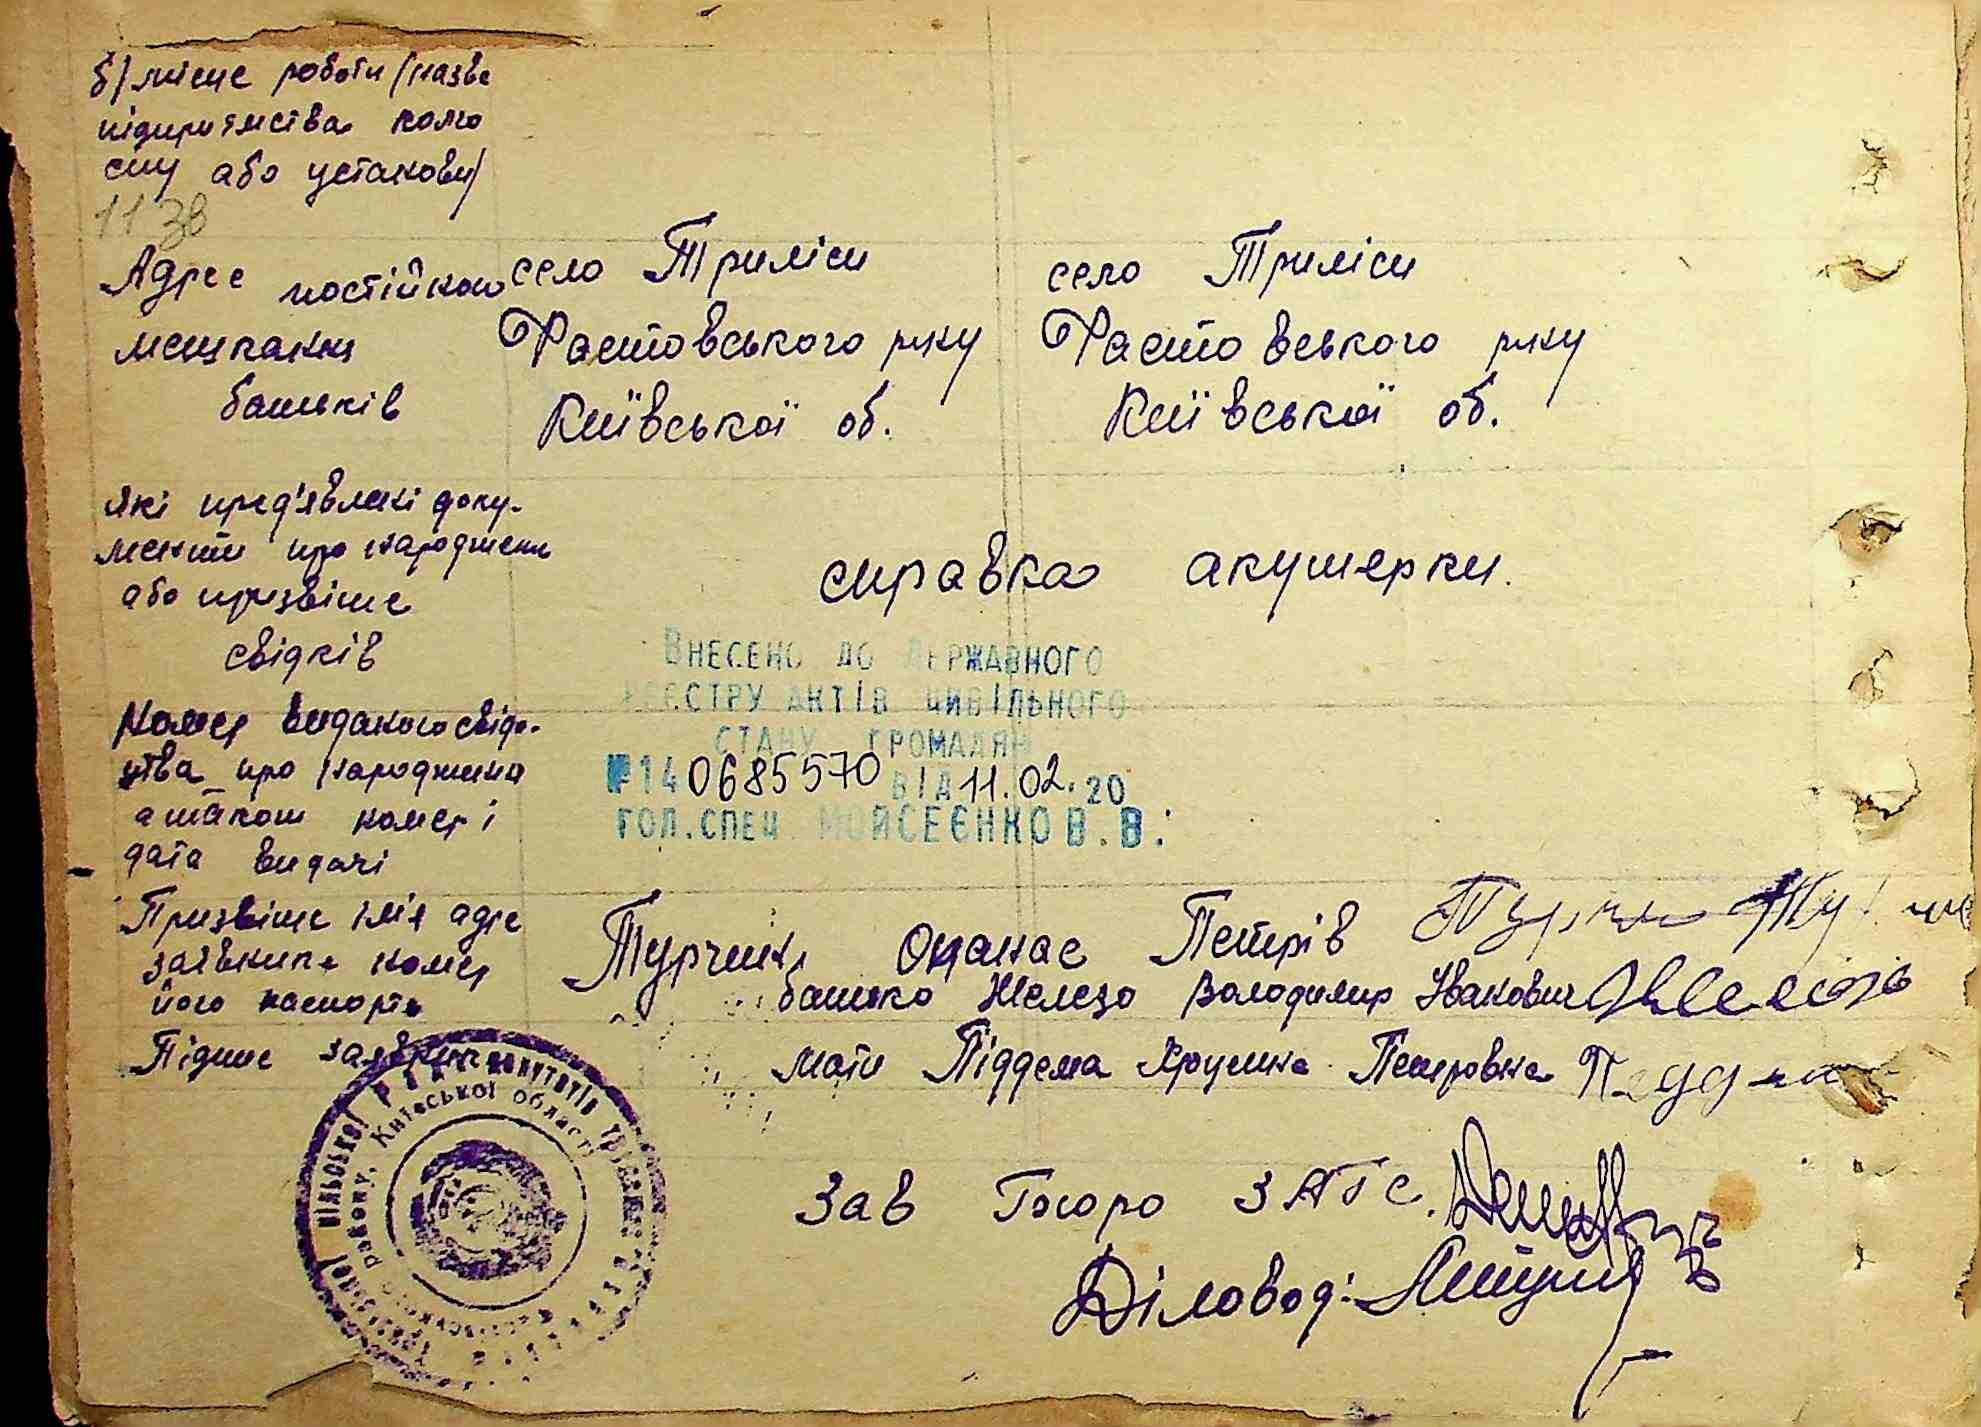 б/ місце роботи /назва
підприємства колго
спу або установи/
1138
Адрес постійного
мешкання
батьків
село Триліси
Фастовського р-ну
Київської об.
село Триліси
Фастовського р-ну
Київської об.
Які пред'явлені доку-
менти про народження
або призвіще
свідків
справка акушерки.
Внесено до Державного
реєстру актів цивільного
стану громадян
№140685570 від 11.02.20
гол.спец Мойсеєнко В.В.
Номер виданого свідо-
цтва про народження
а також номер і
дата видачі
Призвіще імя адрес
заявника номер
його паспорта
Підпис заявника
Турчин Опанас Петрів
батько Железо Володимир Іванович
мати Піддема Петровна
Київської області
Зав Бюро ЗАГС.
Діловод: